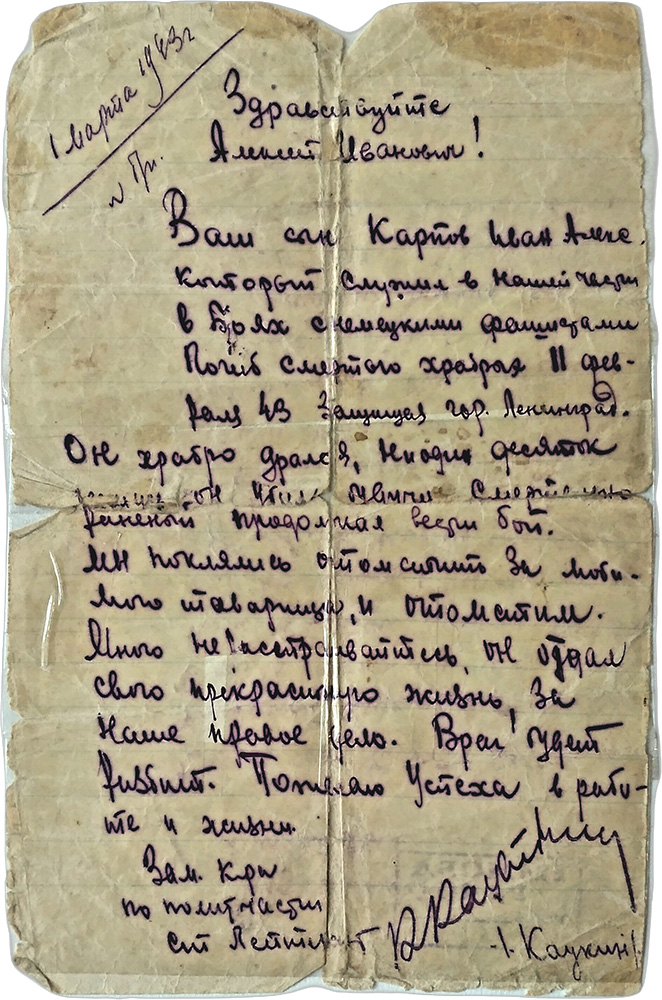 1 марта 1943 г
Здравствуйте
Алексей Иванович!
Ваш сын Карпов Иван Алекс.
который служил в нашей части
в боях с немецкими фашистами
погиб смертью храбрых 11 фев-
раля 43 защищая гор. Ленинград.
Он храбро дрался, не один десяток
он убил смертельно
раненый продолжал вести бой.
мы поклялись отомстить за люби-
мого товарища, и отомстим.
Много не расстраивайтесь, он отдал
свою прекрасную жизнь, за
наше правое дело. Враг будет
разбит. Пожелаю успеха в рабо-
те и жизни.
Зам. к-ра
по политчасти
ст Лейтенант